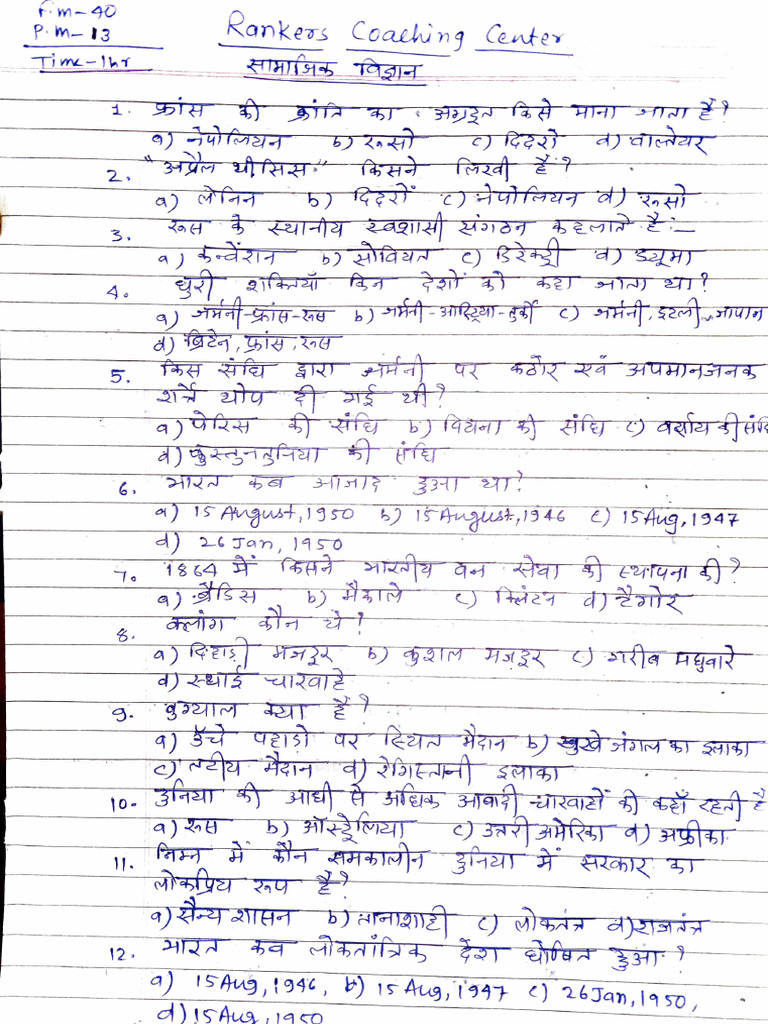 F.m-40
P.M-13
Time-1hr
Rankers Coaching Center
सामाजिक विज्ञान
1. फ्रांस की क्रांति का अग्रदूत किसे माना जाता है?
a) नेपोलियन b) रूसो c) दिदरो d) वाल्तेयर
2. "अप्रैल थीसिस" किसने लिखी है?
a) लेनिन b) दिदरो c) नेपोलियन d) रूसो
3. रूस के स्थानीय स्वशासी संगठन कहलाते है:-
a) कन्वेंशन b) सोवियत c) डिरेक्ट्री d) ड्यूमा
4. धुरी शक्तियाँ किन देशों को कहा जाता था?
a) जर्मनी-फ्रांस-रूस b) जर्मनी-आस्ट्रिया-तुर्की c) जर्मनी, इटली, जापान
d) ब्रिटेन, फ्रांस, रूस
5. किस संधि द्वारा जर्मनी पर कठोर एवं अपमानजनक
शर्त्ते थोप दी गई थी?
a) पेरिस की संधि b) वियना की संधि c) वर्साय की संधि
d) कुस्तुनतुनिया की संधि
6. भारत कब आजाद हुआ था?
a) 15 August, 1950 b) 15 August, 1946 c) 15 Aug, 1947
d) 26 Jan, 1950
7. 1864 में किसने भारतीय वन सेवा की स्थापना की?
a) ब्रैंडिस b) मैकाले c) क्लिंटन d) टैगोर
8. क्लांग कौन थे?
a) दिहाड़ी मजदूर b) कुशल मजदूर c) गरीब मछुवारे
d) स्थाई चारवाहे
9. बुग्याल क्या है?
a) ऊँचे पहाड़ो पर स्थित मैदान b) सुखे जंगल का इलाका
c) तटीय मैदान d) रेगिस्तानी इलाका
10. दुनिया की आधी से अधिक आबादी चारवाहों की कहाँ रहती है
a) रूस b) ऑस्ट्रेलिया c) उत्तरी अमेरिका d) अफ्रीका
11. निम्न में कौन समकालीन दुनिया में सरकार का
लोकप्रिय रूप है?
a) सैन्य शासन b) तानाशाही c) लोकतंत्र d) राजतंत्र
12. भारत कब लोकतांत्रिक देश घोषित हुआ?
a) 15 Aug, 1946, b) 15 Aug, 1947 c) 26 Jan, 1950,
d) 15 Aug, 1950